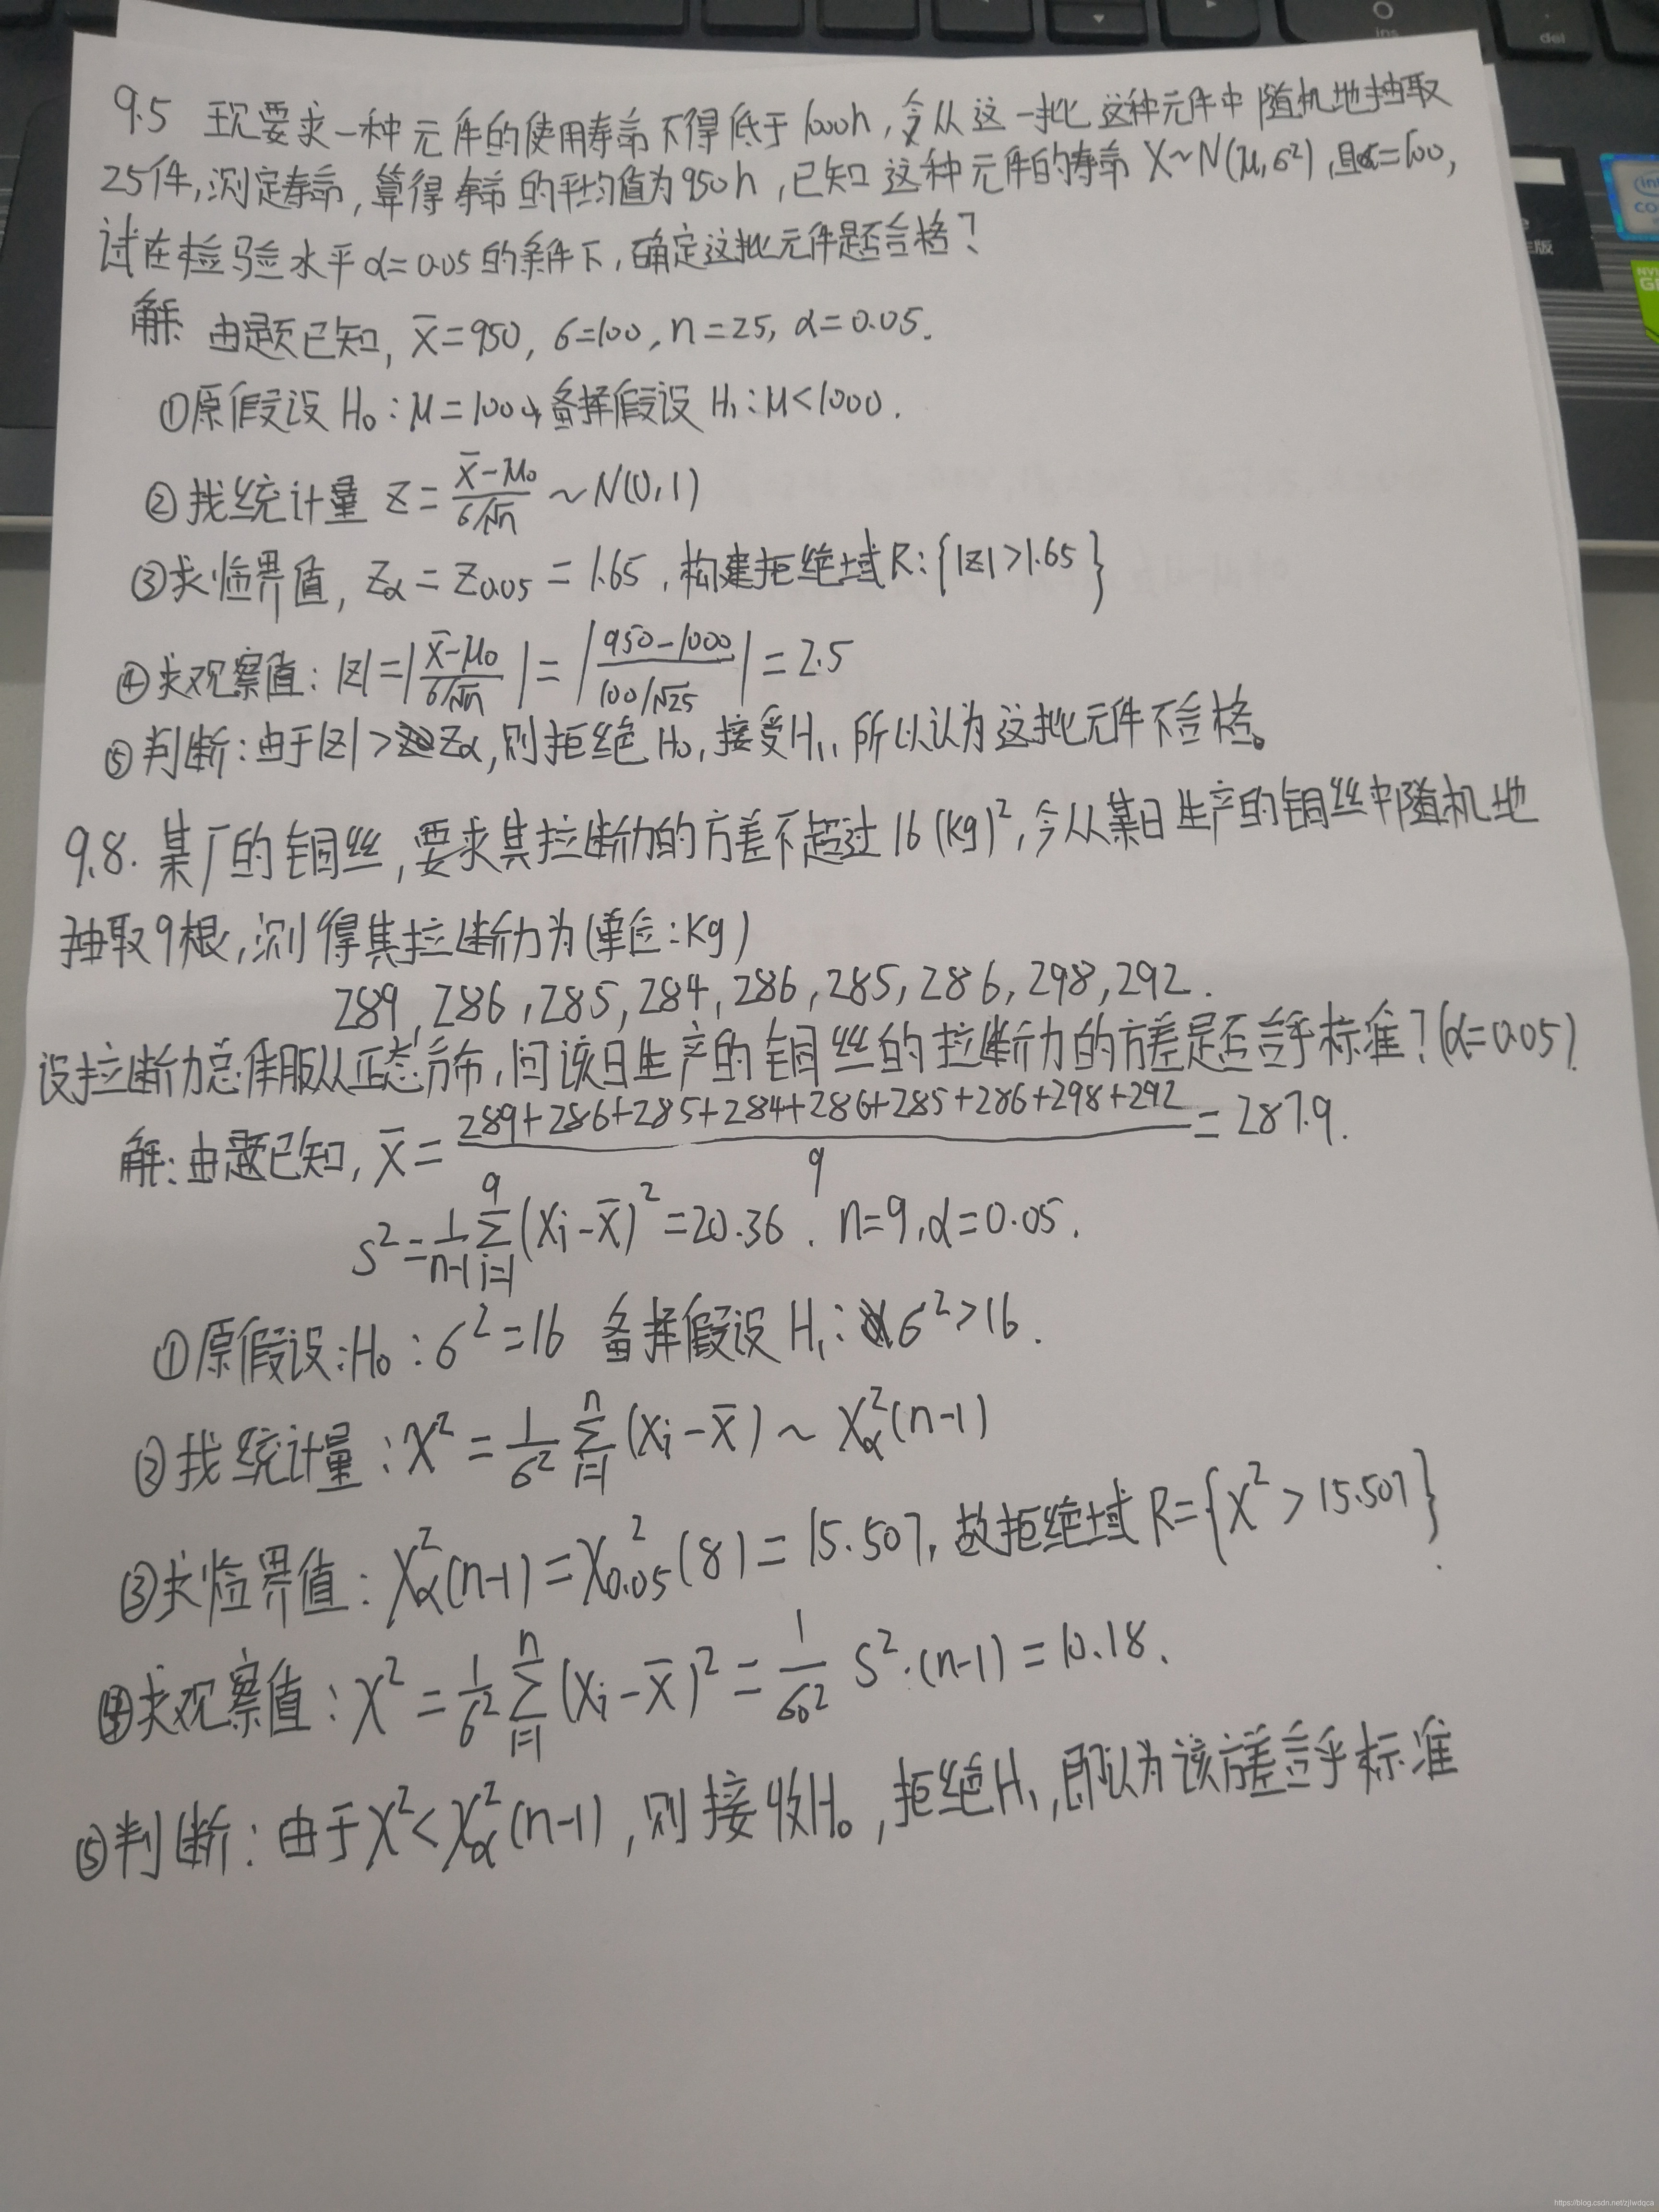 ins
del
9.5 现要求一种元件的使用寿命不得低于1000h,今从这一批这种元件中随机地抽取
25件,测定寿命,算得寿命的平均值为950h,已知这种元件的寿命X~N(μ,σ²),且σ=100,
试在检验水平α=0.05的条件下,确定这批元件是否合格?
解: 由题已知, x̄=950, σ=100, n=25, α=0.05.
①原假设 H₀:μ=1000, 备择假设 H₁:μ<1000.
②找统计量 Z=(x̄-μ₀)/(σ/√n) ~N(0,1)
③求临界值, Zα=Z0.05=1.65,构建拒绝域R:{|Z|>1.65}
④求观察值: |Z|=|(x̄-μ₀)/(σ/√n)|=|(950-1000)/(100/√25)|=2.5
⑤判断:由于|Z|>Zα,则拒绝H₀,接受H₁,所以认为这批元件不合格。
9.8. 某厂的铜丝,要求其拉断力的方差不超过16(kg)²,今从某日生产的铜丝中随机地
抽取9根,测得其拉断力为(单位:Kg)
289,286,285,284,286,285,286,298,292.
设拉断力总体服从正态分布,问该日生产的铜丝的拉断力的方差是否合乎标准?(α=0.05).
解:由题已知, x̄=(289+286+285+284+286+285+286+298+292)/9=287.9.
S²=1/(n-1) Σᵢ₌₁⁹(Xᵢ-x̄)²=20.36. n=9,α=0.05.
①原假设:H₀:σ²=16 备择假设 H₁:σ²>16.
②找统计量:χ²=1/σ² Σᵢ₌₁ⁿ(Xᵢ-x̄)~χ²α(n-1)
③求临界值:χ²α(n-1)=χ²0.05(8)=15.507,故拒绝域R={χ²>15.507}.
④求观察值:χ²=1/σ² Σᵢ₌₁ⁿ(Xᵢ-x̄)²=1/σ₀² S²·(n-1)=10.18.
⑤判断:由于χ²<χ²α(n-1),则接收H₀,拒绝H₁,即认为该方差合乎标准
https://blog.csdn.net/zjlwdqca